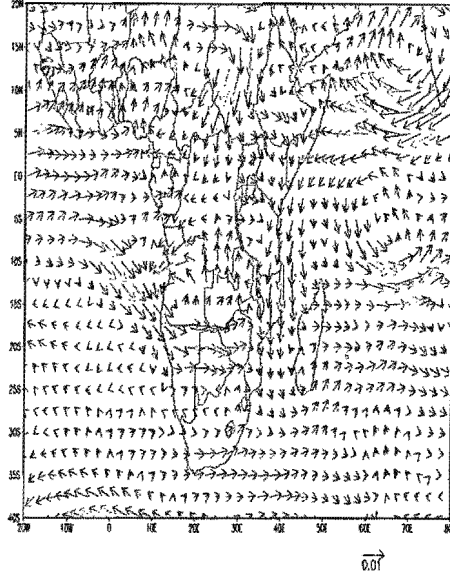 20N
15N
10N
5N
EQ
5S
10S
15S
20S
25S
30S
35S
40S
20W 10W 0 10E 20E 30E 40E 50E 60E 70E 80
0.01